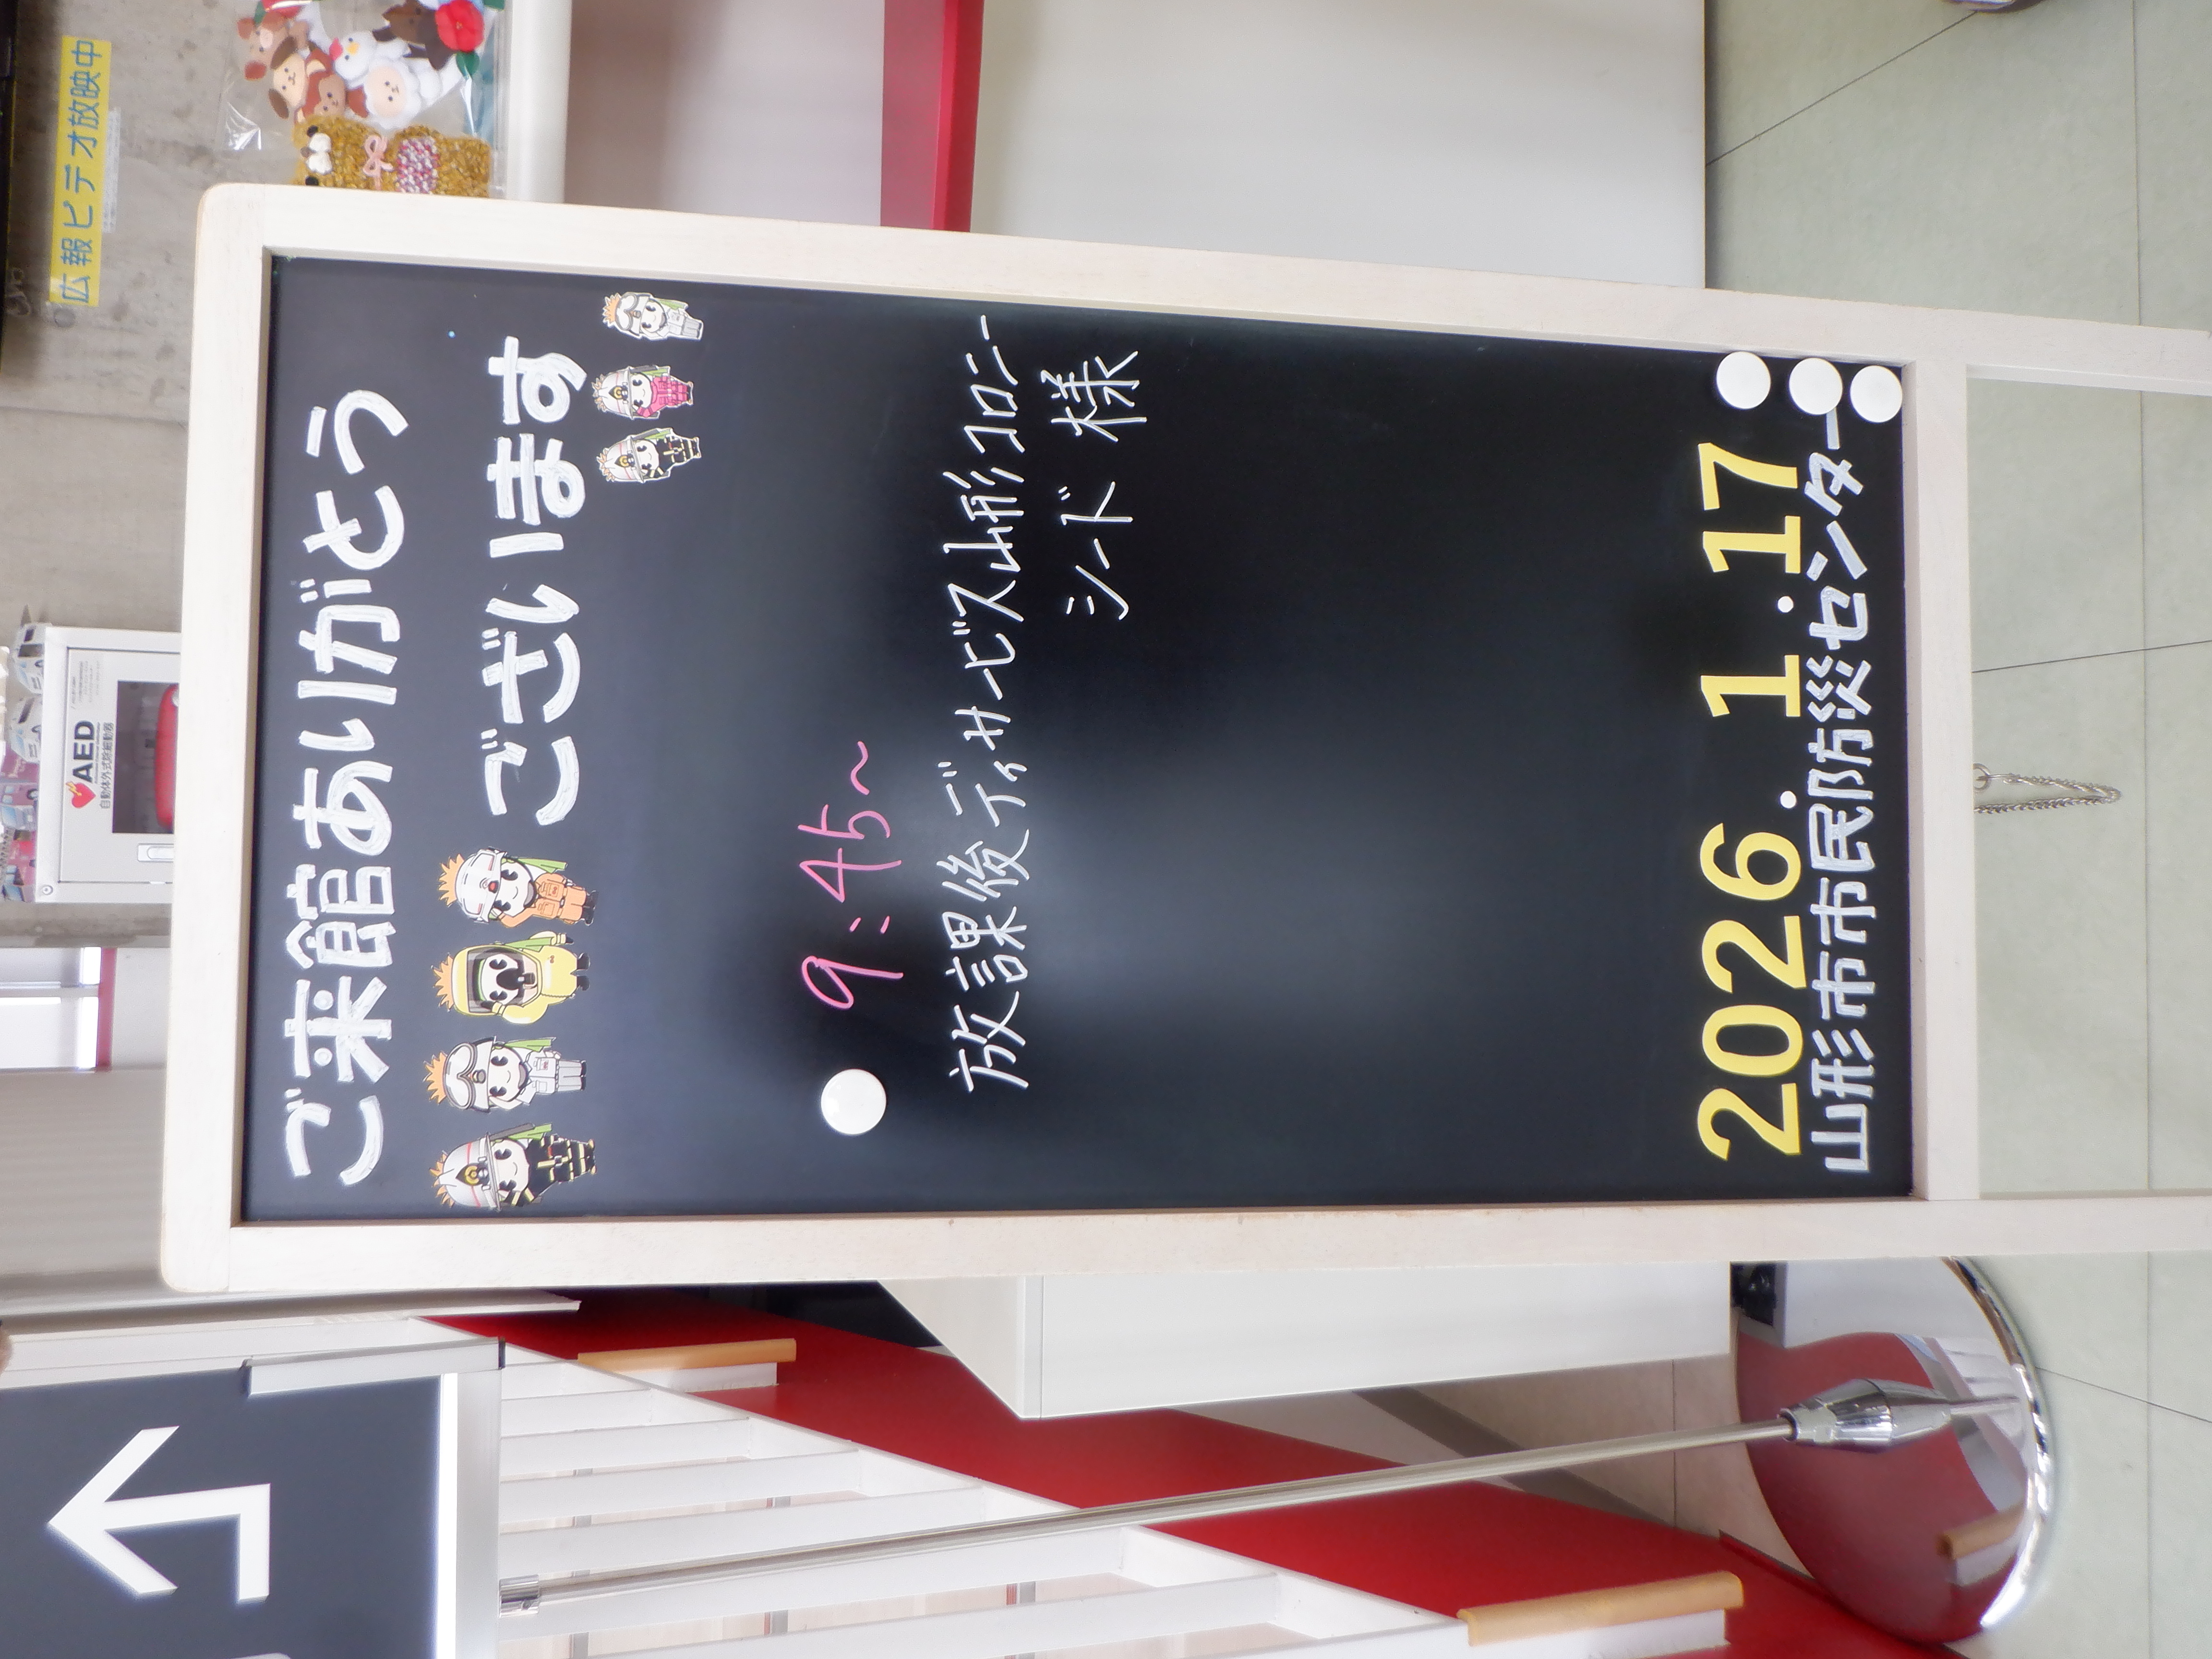 ご来館ありがとう
ございます
9:45〜
放課後ディサービス山形コロニー
シード 様
2026.1.17
山形市市民防災センター
広報ビデオ放映中
AED
自動体外式除細動器